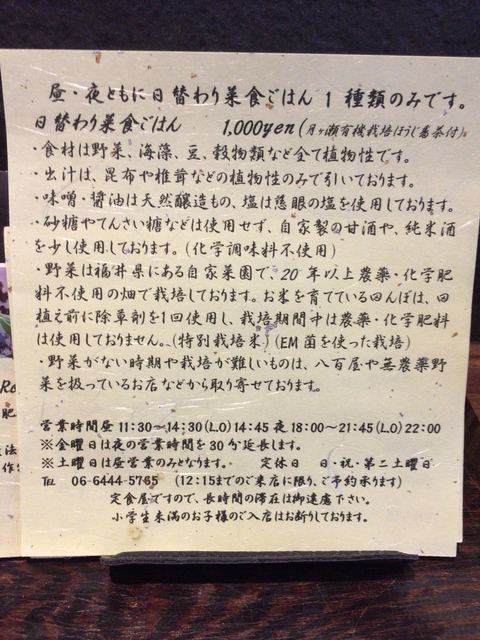 昼・夜ともに日替わり菜食ごはん 1 種類のみです。
日替わり菜食ごはん 1,000yen(月ヶ瀬有機栽培ほうじ番茶付)
・食材は野菜、海藻、豆、穀物類など全て植物性です。
・出汁は、昆布や椎茸などの植物性のみで引いております。
・味噌・醤油は天然醸造もの、塩は慈眼の塩を使用しております。
・砂糖やてんさい糖などは使用せず、自家製の甘酒や、純米酒
を少し使用しております。(化学調味料不使用)
・野菜は福井県にある自家菜園で、20 年以上農薬・化学肥
料不使用の畑で栽培しております。お米を育てている田んぼは、田
植え前に除草剤を1回使用し、栽培期間中は農薬・化学肥料
は使用しておりません。(特別栽培米)(EM 菌を使った栽培)
・野菜がない時期や栽培が難しいものは、八百屋や無農薬野
菜を扱っているお店などから取り寄せております。
営業時間昼 11:30〜14:30(L.O) 14:45 夜 18:00〜21:45(L.O) 22:00
※金曜日は夜の営業時間を 30 分延長します。
※土曜日は昼営業のみとなります。 定休日 日・祝・第二土曜日
TEL 06-6444-5765 (12:15までのご来店に限り、ご予約承ります)
定食屋ですので、長時間の滞在は御遠慮下さい。
小学生未満のお子様のご入店はお断りしております。
Ro
肥
法
作